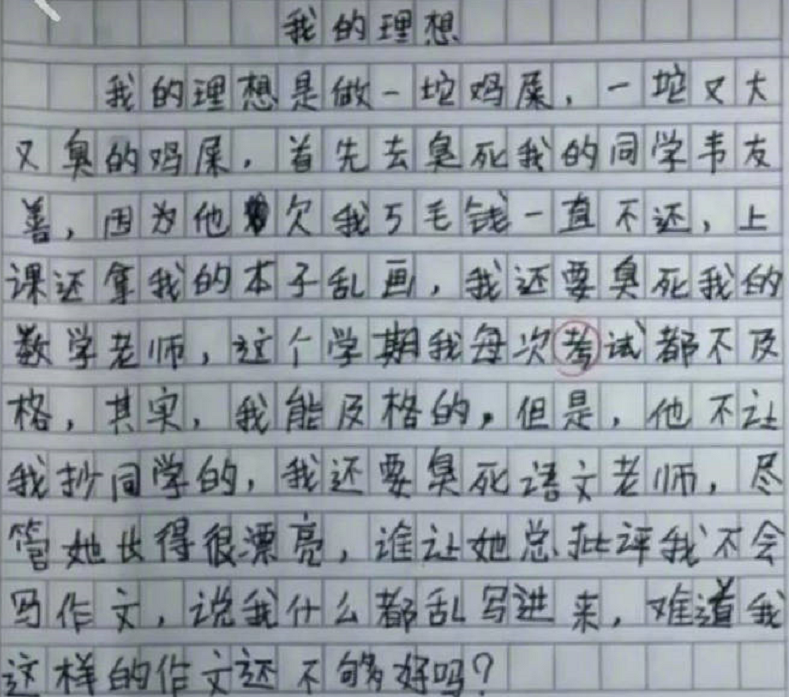 我的理想
我的理想是做一坨鸡屎，一坨又大
又臭的鸡屎，首先去臭死我的同学韦友
善，因为他欠我5毛钱一直不还，上
课还拿我的本子乱画，我还要臭死我的
数学老师，这个学期我每次考试都不及
格，其实，我能及格的，但是，他不让
我抄同学的，我还要臭死语文老师，尽
管她长得很漂亮，谁让她总批评我不会
写作文，说我什么都乱写进来，难道我
这样的作文还不够好吗？